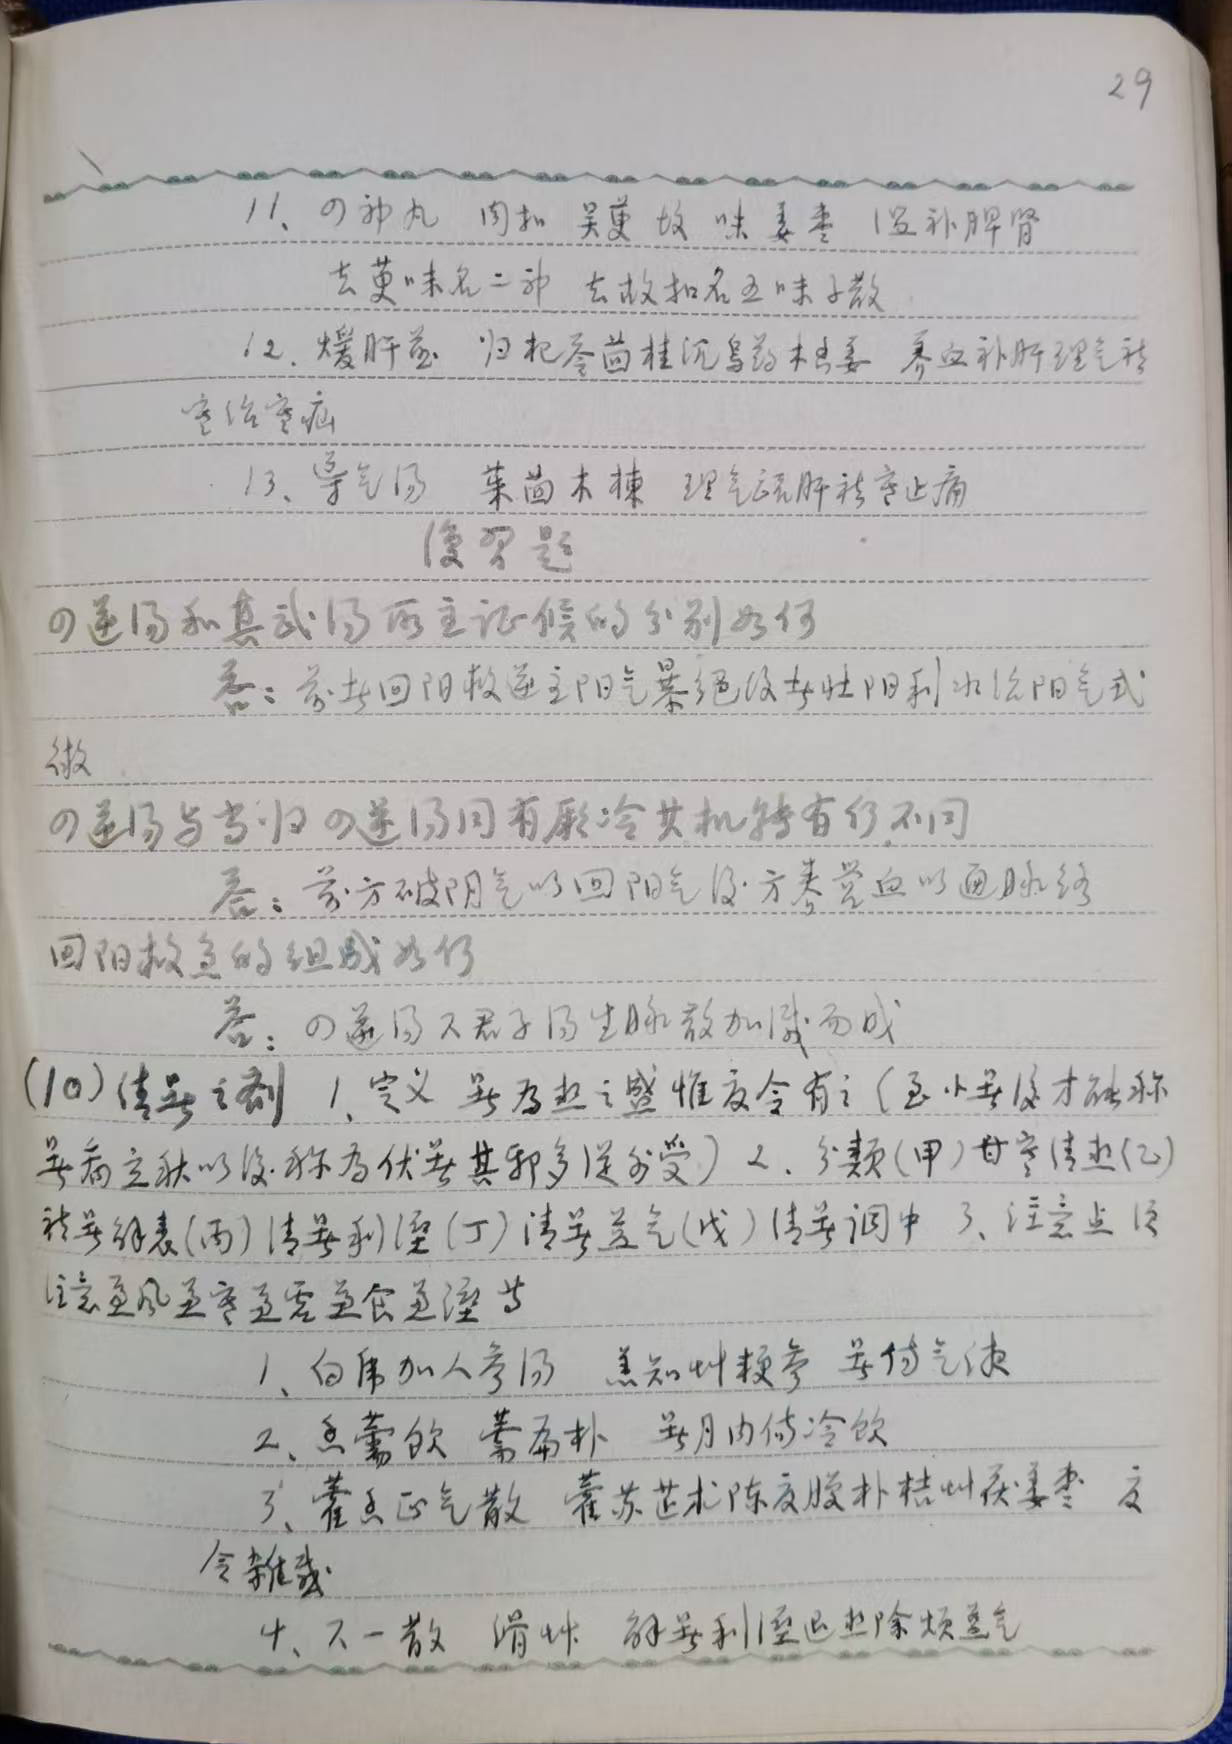 29
11、四神丸 肉扣 吴萸 故 味 姜枣 温补脾肾
去萸味名二神 去故扣名五味子散
12、煖肝煎 归杞苓茴桂沉乌药木香姜 养血补肝理气祛
寒治寒疝
13、导气汤 萸茴木楝 理气疏肝祛寒止痛
復習题
四逆汤和真武汤所主证候的分别如何
答：前者回阳救逆主阳气暴绝后者壮阳利水治阳气式
微
四逆汤与当归四逆汤同有厥冷其机转有何不同
答：前方破阴气以回阳气后方养营血以通脉络
回阳救急的组成如何
答：四逆汤六君子汤生脉散加减而成
(10)清暑之剂 1、定义 暑为热之盛惟夏令有之（至小暑後才能称
暑病立秋以後称为伏暑其邪多从外受）2、分類(甲)甘寒清热(乙)
祛暑解表(丙)清暑利湿(丁)清暑益气(戊)清暑调中 3、注意点 须
注意兼风兼寒兼虚兼食兼湿等
1、白虎加人参汤 羔知草粳参 暑傷气液
2、香薷饮 薷扁朴 暑月内傷冷飲
3、藿香正气散 藿苏芷术陈夏腹朴桔草茯姜枣 夏
令雜感
4、六一散 滑草 解暑利湿退热除烦益气